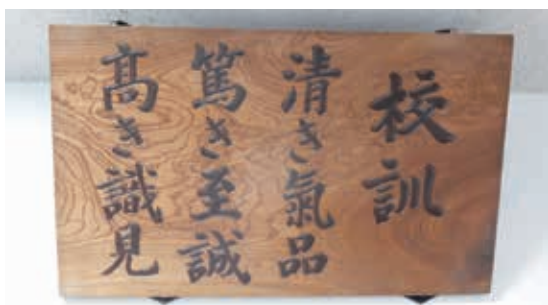 校訓
清き氣品
篤き至誠
髙き識見